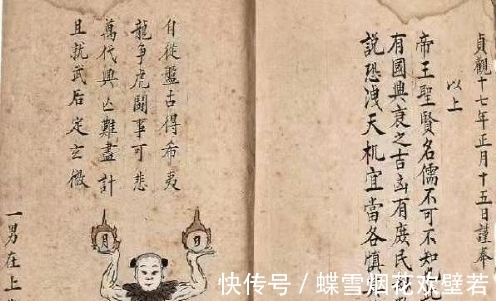 貞觀十七年正月十五日謹奉
以上
帝王聖賢名儒不可不知
有國興衰之吉凶有庶民
説恐洩天机宜當各慎
自從盤古得希夷
龍爭虎鬪事可悲
萬代興亾難盡計
且就武后定玄微
日
月
一男在上
快传号 / 蝶雪烟花欢壁若